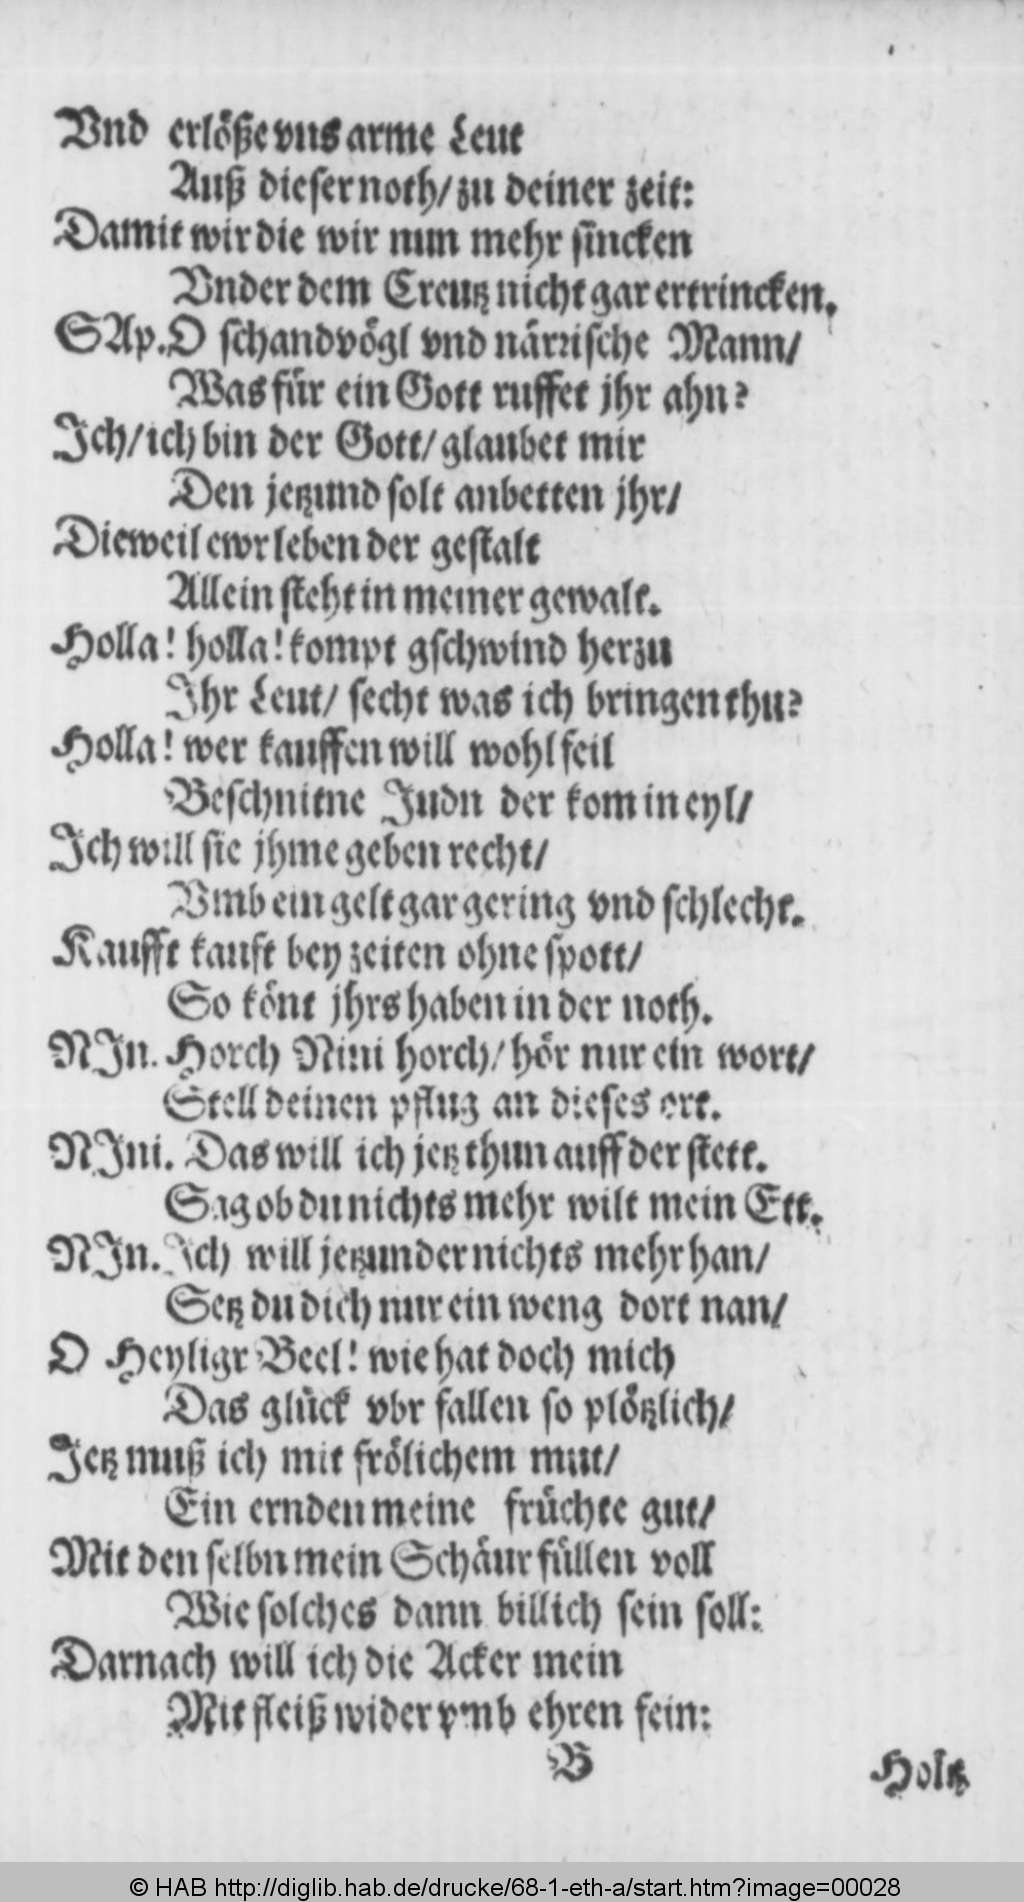 Vnd erlöße vns arme Leut
Auß dieser noth/ zu deiner zeit:
Damit wir die wir nun mehr sincken
Vnder dem Creutz nicht gar ertrincken.
SAp. O schandvögl vnd närrische Mann/
Was für ein Gott ruffet jhr ahn?
Ich/ ich bin der Gott/ glaubet mir
Den jetzund solt anbetten jhr/
Dieweil ewr leben der gestalt
Allein steht in meiner gewalt.
Holla! holla! kompt gschwind herzu
Ihr Leut/ secht was ich bringen thu?
Holla! wer kauffen will wohlfeil
Beschnitne Judn der kom in eyl/
Ich will sie jhme geben recht/
Vmb ein gelt gar gering vnd schlecht.
Kaufft kauft bey zeiten ohne spott/
So könt jhrs haben in der noth.
NJn. Horch Nini horch/ hör nur ein wort/
Stell deinen pflug an dieses ort.
NJni. Das will ich jetz thun auff der stett.
Sag ob du nichts mehr wilt mein Ett.
NJn. Ich will jetzunder nichts mehr han/
Setz du dich nur ein weng dort nan/
O Heyligr Beel! wie hat doch mich
Das glück vbr fallen so plötzlich/
Jetz muß ich mit frölichem mut/
Ein ernden meine früchte gut/
Mit den selbn mein Schäur füllen voll
Wie solches dann billich sein soll:
Darnach will ich die Acker mein
Mit fleiß wider vmb ehren fein:
B Holtz
© HAB http://diglib.hab.de/drucke/68-1-eth-a/start.htm?image=00028